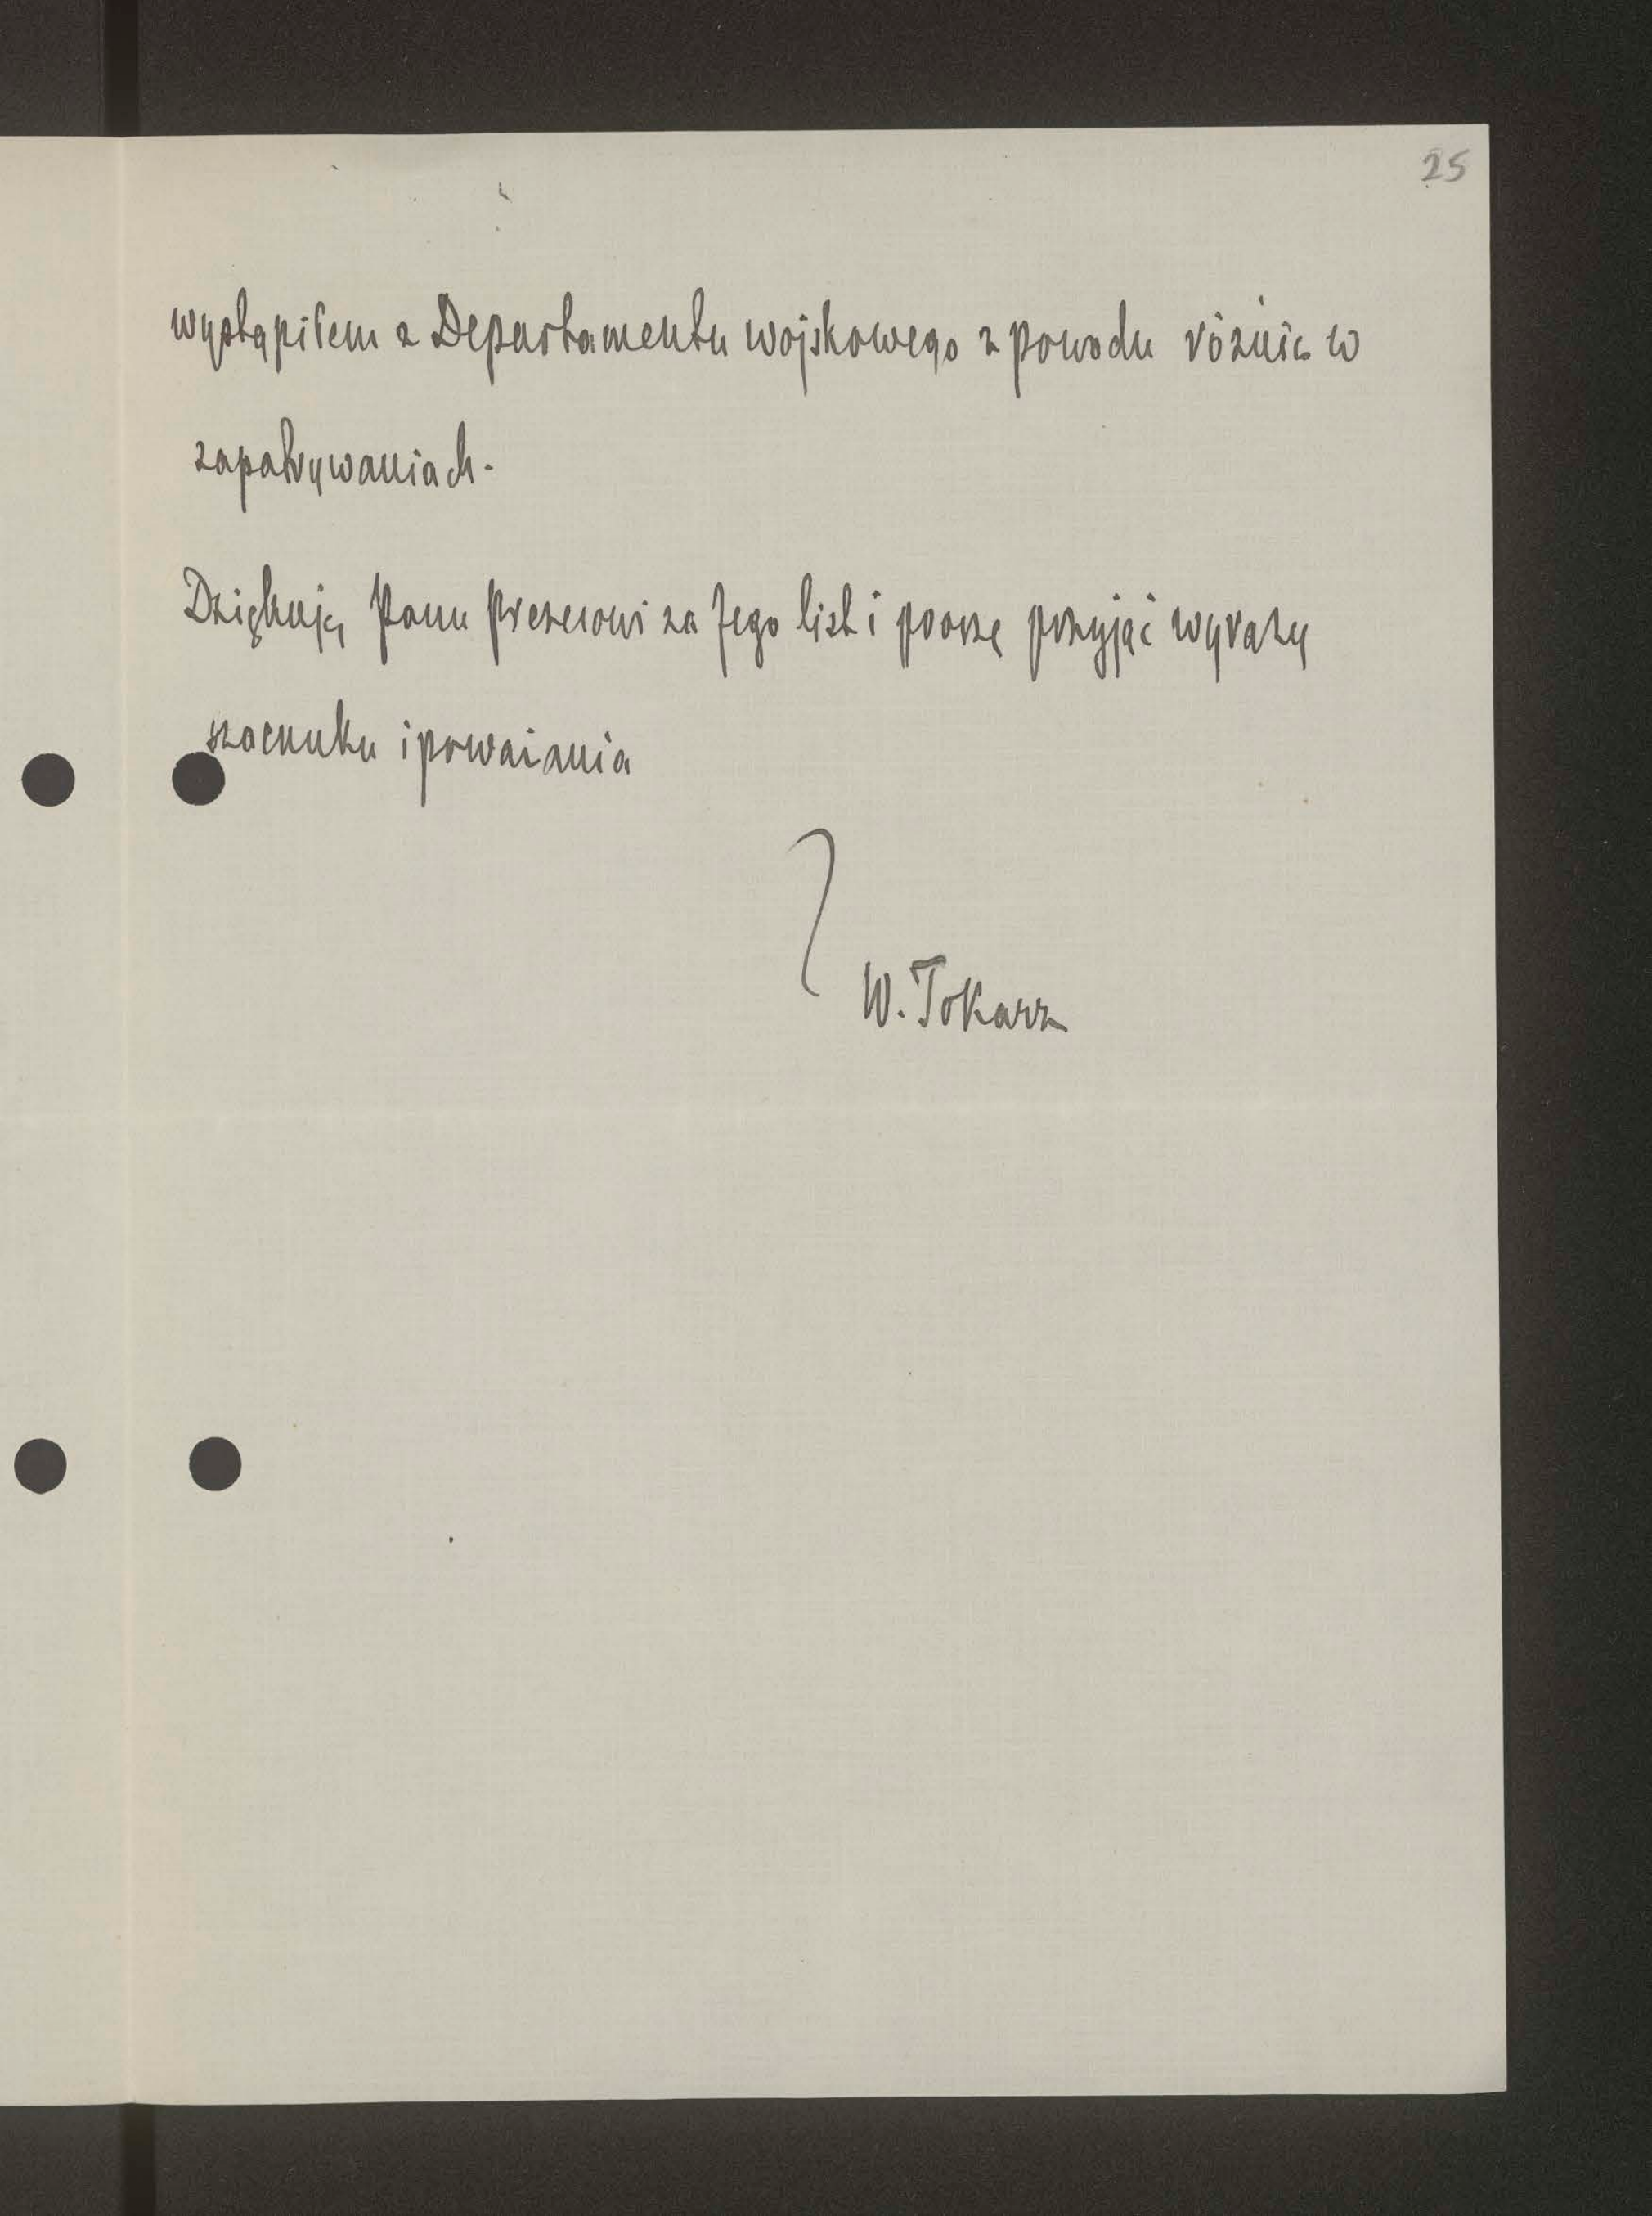 25
wystąpiłem z Departamentu wojskowego z powodu różnic w
zapatrywaniach.
Dziękuję Panu Prezesowi za Jego list i proszę przyjąć wyrazy
szacunku i poważania
W. Tokarz